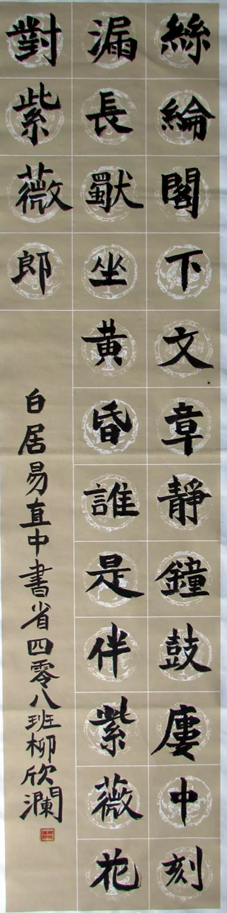 絲綸閣下文章靜鐘鼓廔中刻
漏長獨坐黃昏誰是伴紫薇花
對紫薇郎
白居易直中書省四零八班柳欣瀾